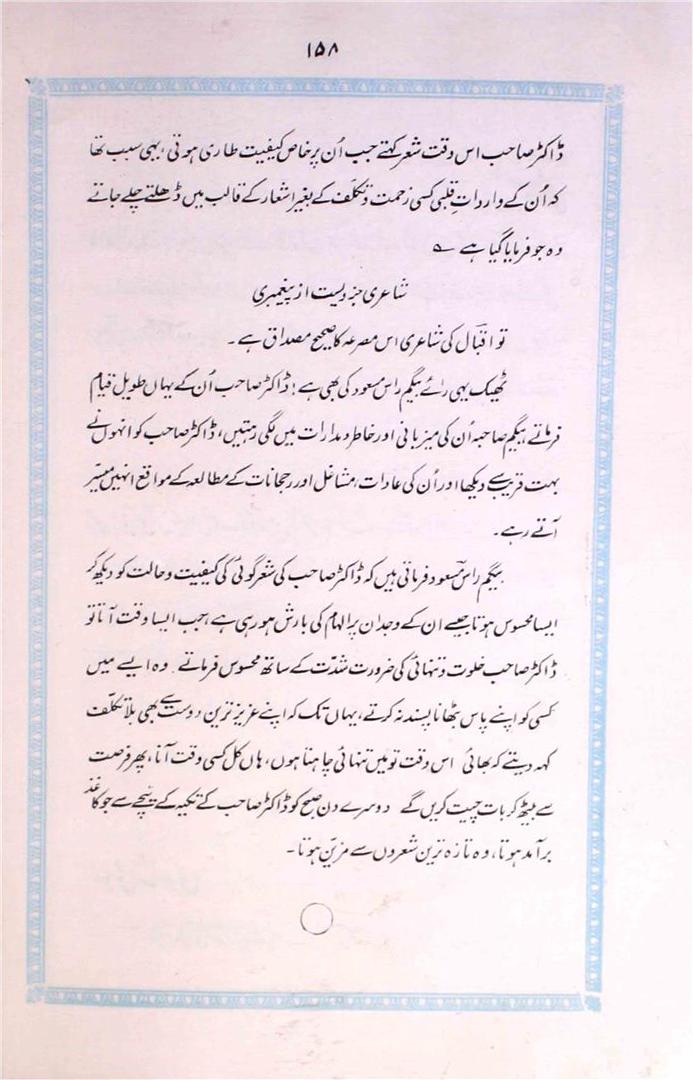 ۱۵۸
ڈاکٹر صاحب اس وقت شعر کہتے جب اُن پر خاص کیفیت طاری ہوتی، یہی سبب تھا
کہ اُن کے وارداتِ قلبی کسی زحمت و تکلّف کے بغیر اشعار کے قالب میں ڈھلتے چلے جاتے
وہ جو فرمایا گیا ہے ؎
شاعری جزویست از پیغمبری
تو اقبالؔ کی شاعری اس مصرعہ کا صحیح مصداق ہے۔
ٹھیک یہی رائے بیگم راس مسعود کی بھی ہے! ڈاکٹر صاحب اُن کے یہاں طویل قیام
فرماتے، بیگم صاحبہ اُن کی میزبانی اور خاطر و مدارات میں لگی رہتیں، ڈاکٹر صاحب کو انہوں نے
بہت قریب سے دیکھا اور اُن کی عادات، مشاغل اور رجحانات کے مطالعہ کے مواقع انہیں میسّر
آتے رہے۔
بیگم راس مسعود فرماتی ہیں کہ ڈاکٹر صاحب کی شعر گوئی کی کیفیت و حالت کو دیکھ کر
ایسا محسوس ہوتا جیسے ان کے وجدان پر الہام کی بارش ہو رہی ہے، جب ایسا وقت آتا تو
ڈاکٹر صاحب خلوت و تنہائی کی ضرورت شدّت کے ساتھ محسوس فرماتے۔ وہ ایسے میں
کسی کو اپنے پاس بٹھانا پسند نہ کرتے، یہاں تک کہ اپنے عزیز ترین دوست سے بھی بلا تکلّف
کہہ دیتے کہ بھائی اس وقت تو میں تنہائی چاہتا ہوں، ہاں کل کسی وقت آنا، پھر فرصت
سے بیٹھ کر بات چیت کریں گے دوسرے دن صبح کو ڈاکٹر صاحب کے تکیہ کے نیچے سے جو کاغذ
برآمد ہوتا، وہ تازہ ترین شعروں سے مزیّن ہوتا۔